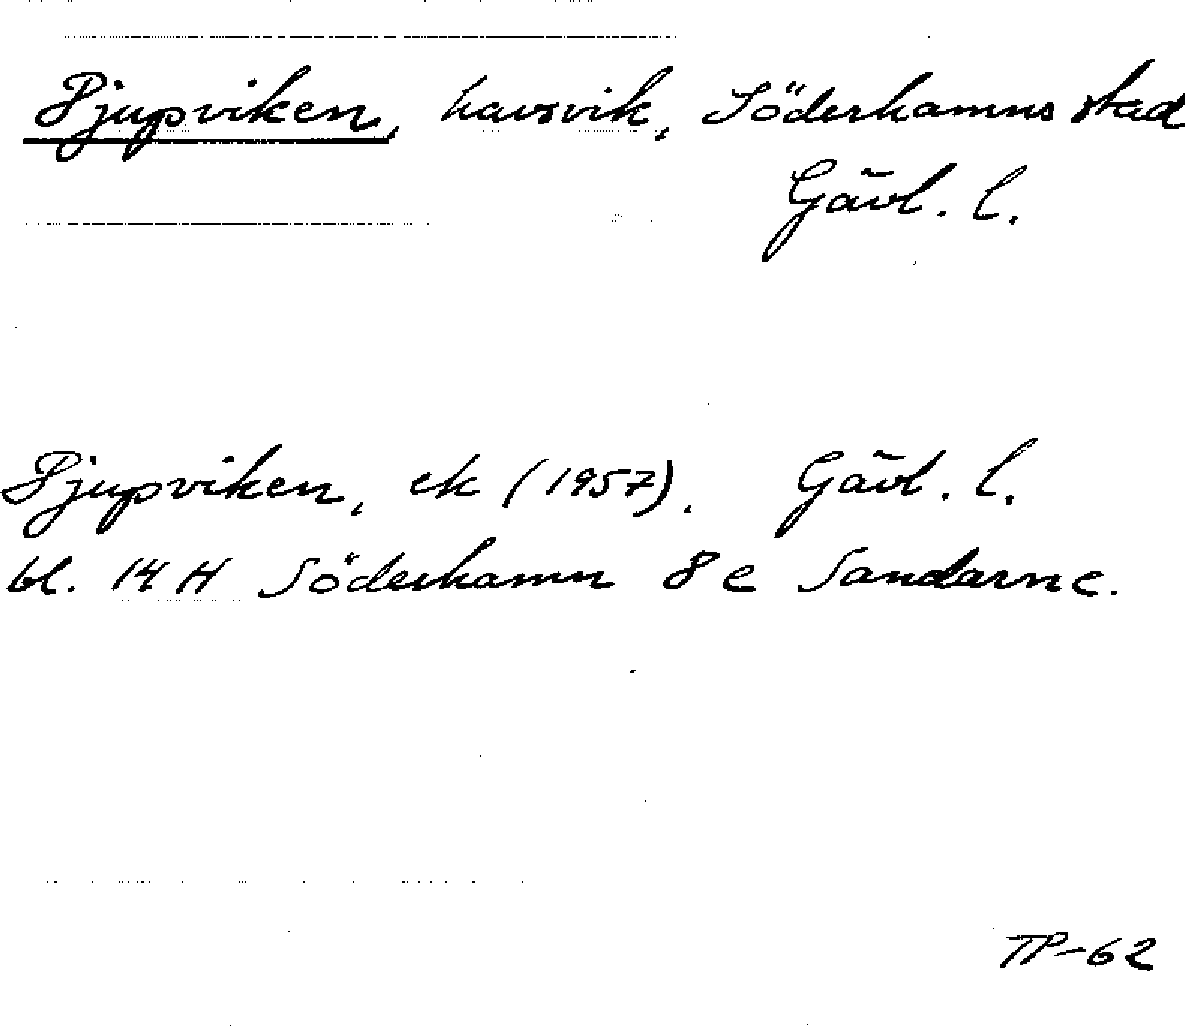 Djupviken, havsvik, Söderhamns stad
Gävl. l.
Djupviken, ek (1957). Gävl. l.
bl. 14 H Söderhamn 8 e Sandarne.
TP-62